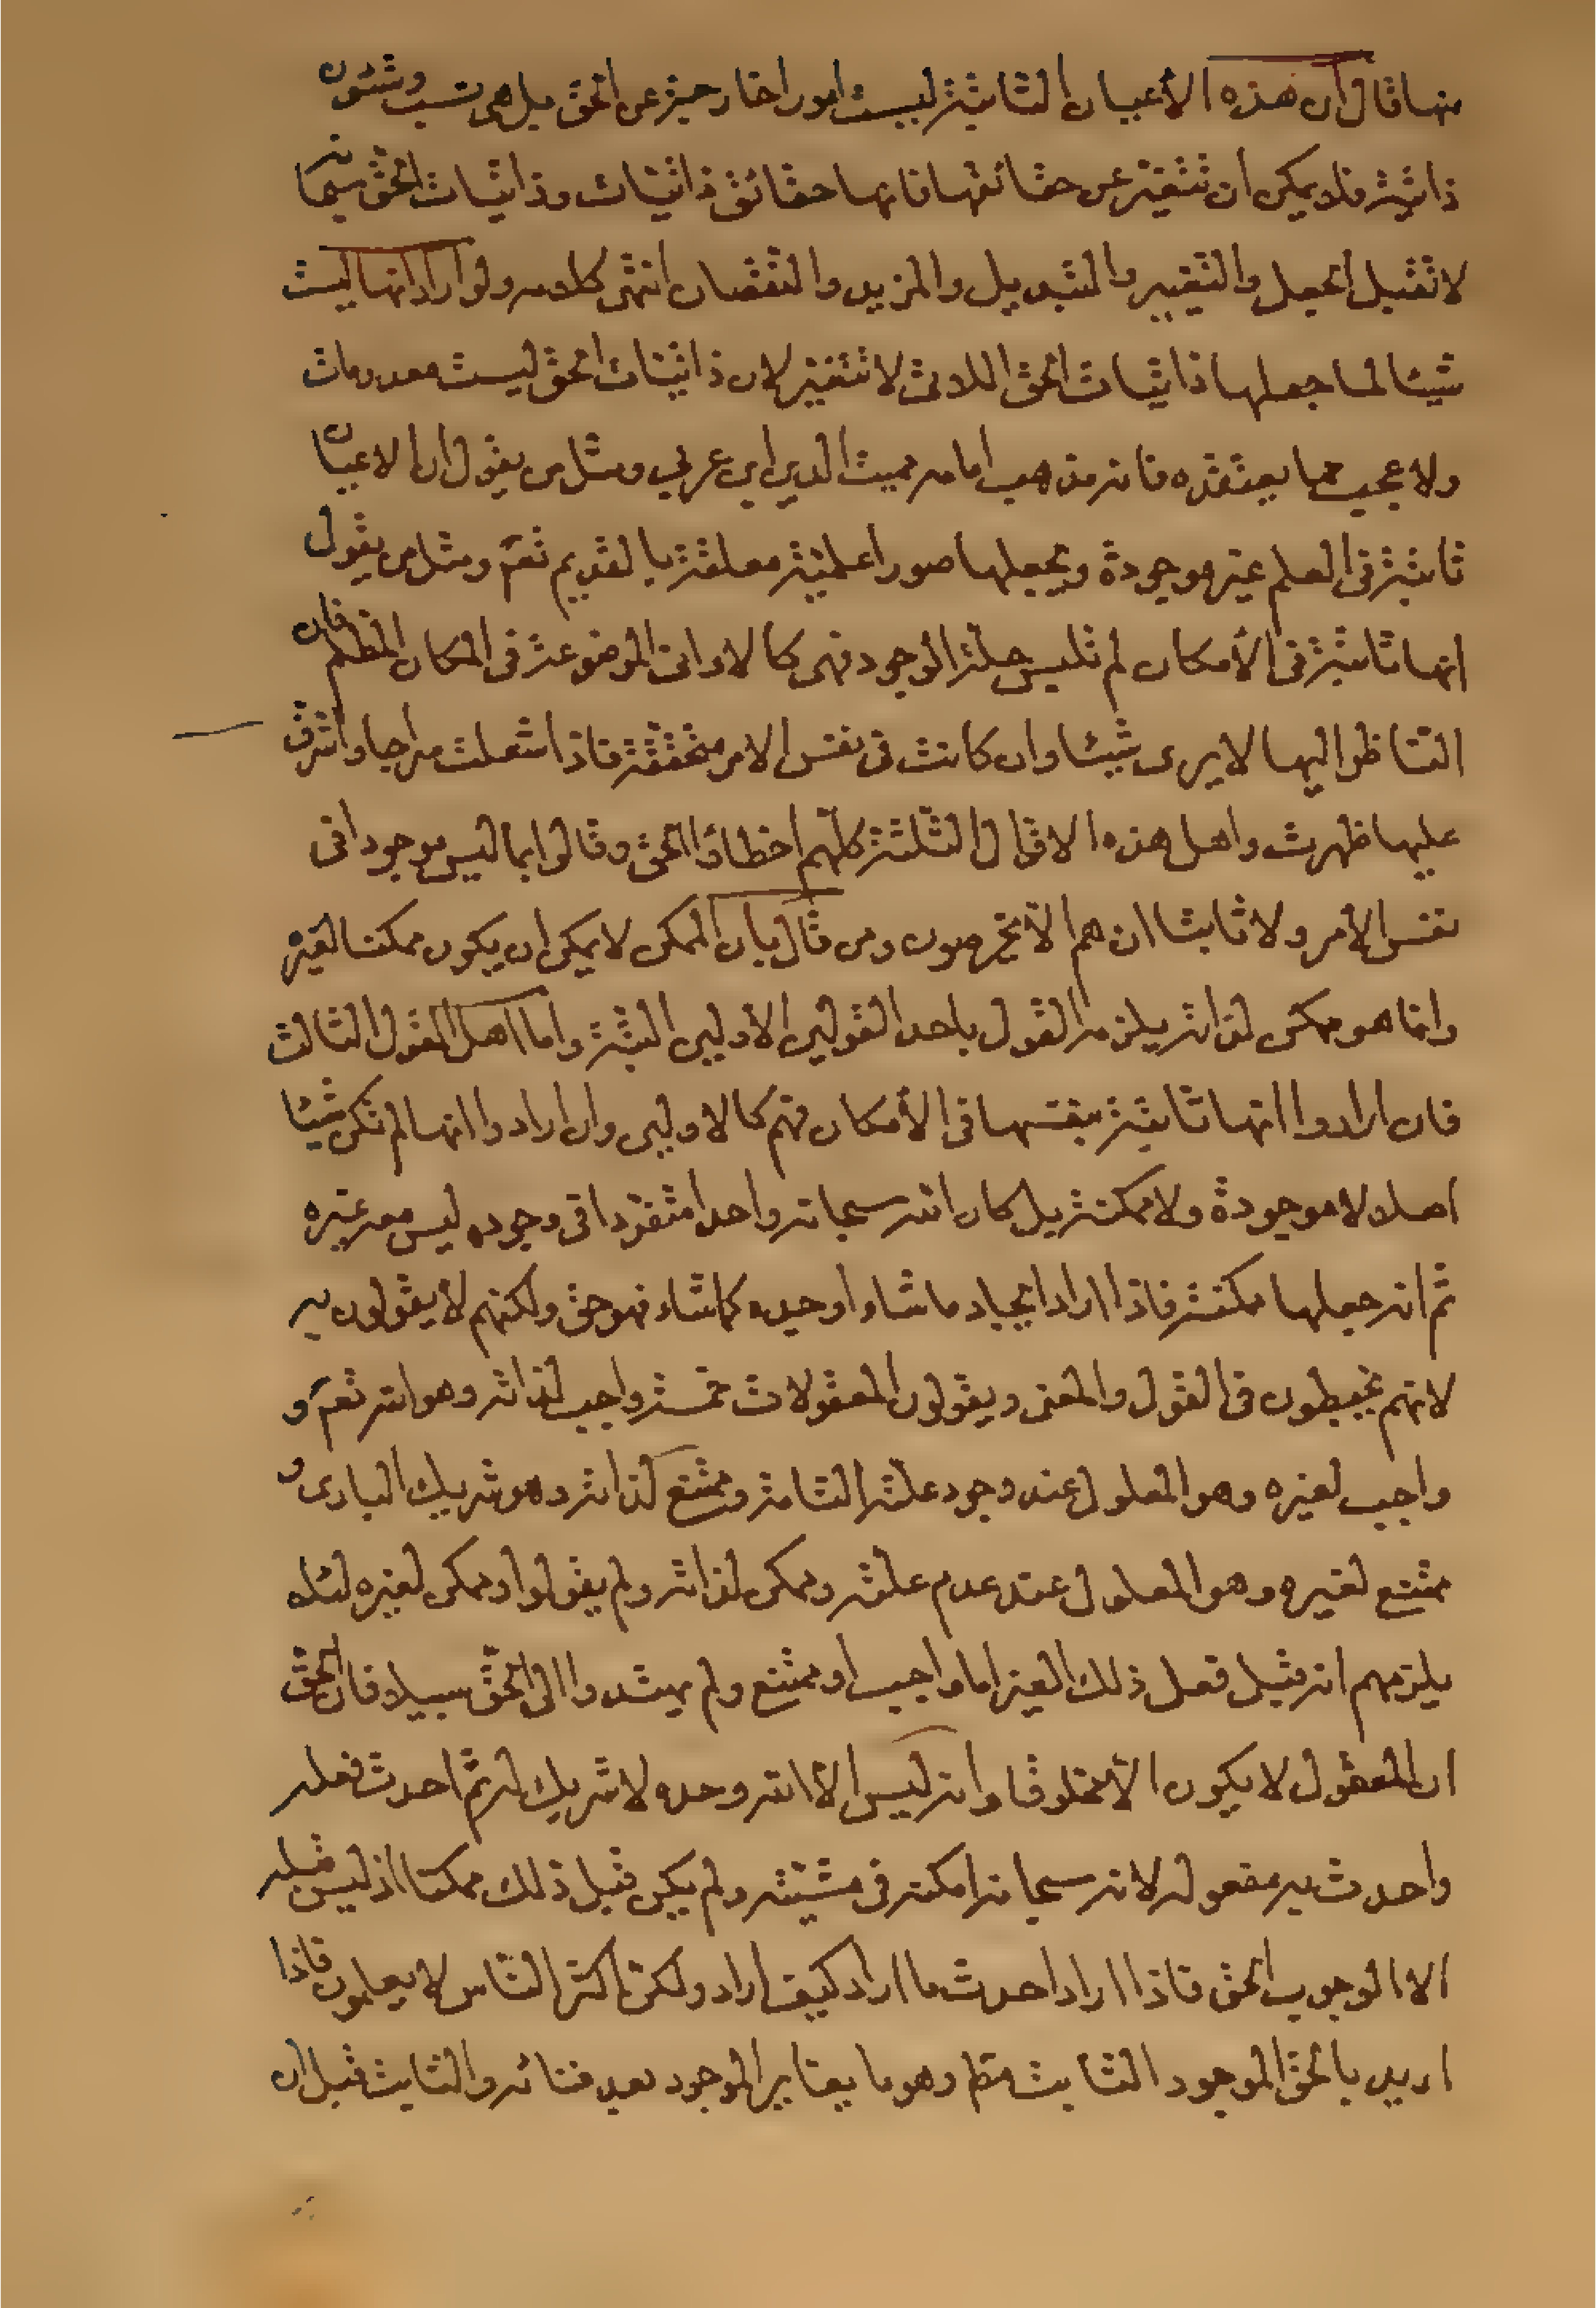 منها قال ان هذه الأعيان الثابتة ليست امورا خارجية عن الحق بل هى نسب وشئون
ذاتية فلا يمكن ان تتغير عن حقائقها فانها حقائق ذاتيات وذاتيات الحق سبحانه
لا تقبل الجعل والتغيير والتبديل والمزيد والنقصان انتهى كلامه ولو اراد انها ليست
شيئا لما جعلها ذاتيات الحق اللاتى لا تتغير لان ذاتيات الحق ليست معدومات
ولا عجب مما يعتقده فانه مذهب امامه مميت الدين ابن عربي ومثل من يقول ان الاعيان
ثابتة فى العلم غير موجودة ويجعلها صورا علمية معلقة بالقديم تعم ومثل من يقول
انها ثابتة فى الأمكان لم تلبس حلة الوجود فهى كالاوانى الموضوعة فى المكان المظلم فان
الناظر اليها لا يرى شيئا وان كانت فى نفس الامر متحققة فاذا اشعلت سراجا واشرق
عليها ظهرت واهل هذه الاقوال الثلثة كلهم اخطاؤا الحق وقالوا بما ليس موجودا فى
نفس الأمر ولا ثابتا ان هم الا يخرصون ومن قال بان الممكن لا يمكن ان يكون ممكنا لغيره
وانما هو ممكن لذاته يلزمه القول باحد القولين الأولين البتة واما اهل القول الثالث
فان ارادوا انها ثابتة بنفسها فى الأمكان فهم كالاولين وان ارادوا انها لم تكن شيئا
اصلا لا موجودة ولا ممكنة بل كان الله سبحانه واحدا متفردا فى وجوده ليس معه غيره
ثم انه جعلها ممكنة فاذا اراد ايجاد ما شاء اوجده كما شاء فهو حق ولكنهم لا يقولون به
لانهم يخبطون فى القول والمعنى ويقولون المعقولات خمسة واجب لذاته وهو الله تعم و
واجب لغيره وهو المعلول عند وجود علته التامة وممتنع لذاته وهو شريك البارى و
ممتنع لغيره وهو المعلول عند عدم علته وممكن لذاته ولم يقولوا وممكن لغيره لئلا
يلزمهم انه قبل فعل ذلك الغير اما واجب او ممتنع ولم يهتدوا الى الحق سبيلا فان الحق
ان المعقول لا يكون الا مخلوقا وانه ليس الا الله وحده لا شريك له ثم احدث فعله
واحدث به مفعوله لانه سبحانه امكنه فى مشيته ولم يكن قبل ذلك ممكنا اذ ليس قبله
الا الوجوب الحق فاذا اراد احدث ما اراد كيف اراد ولكن اكثر الناس لا يعلمون فاذا
اريد بالحق الموجود الثابت مقم وهو ما يغاير الموجود بعد فنائه والثابت قبل ان